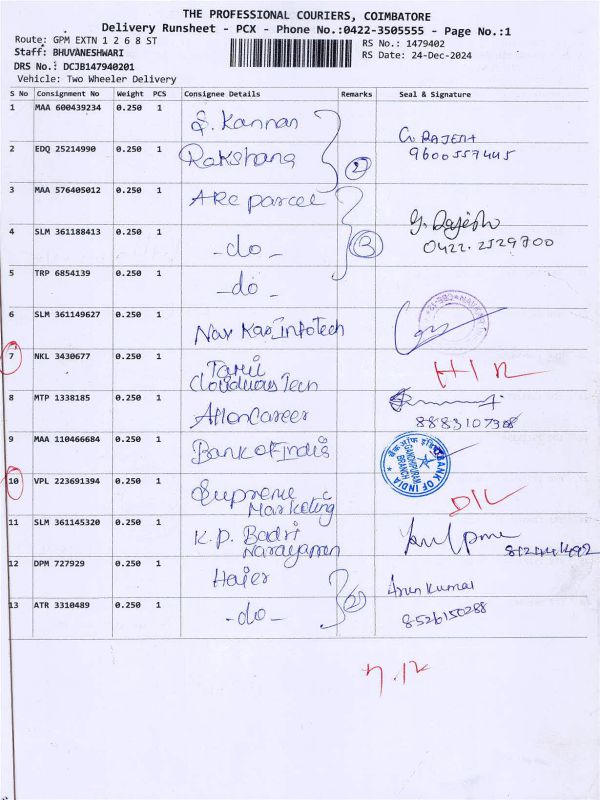 THE PROFESSIONAL COURIERS, COIMBATORE
Delivery Runsheet - PCX - Phone No.:0422-3505555 - Page No.:1
Route: GPM EXTN 1 2 6 8 ST
RS No.: 1479402
Staff: BHUVANESHWARI
RS Date: 24-Dec-2024
DRS No.: DCJB147940201
Vehicle: Two Wheeler Delivery
S No Consignment No Weight PCS Consignee Details Remarks Seal & Signature
1 MAA 600439234 0.250 1 S. Kannan
G. RAJESH
2 EDQ 25214990 0.250 1 Rakshana 2 9600557445
3 MAA 576405012 0.250 1 ARC parcel
4 SLM 361188413 0.250 1 -do- 3 Y. Rajesh
0422.2529700
5 TRP 6854139 0.250 1 -do-
6 SLM 361149627 0.250 1 Nav Kar Infotech
7 NKL 3430677 0.250 1 Tamil
Clouduous Tech
8 MTP 1338185 0.250 1 Allon Career
8883107308
9 MAA 110466684 0.250 1 Bank of India
बैंक ऑफ इंडिया BANK OF INDIA
GANDHIPURAM
BRANCH
10 VPL 223691394 0.250 1 Supreme
Marketing
D/L
11 SLM 361145320 0.250 1 K.P. Badri
Narayanan
12 DPM 727929 0.250 1 Haier
Arun Kumar
13 ATR 3310489 0.250 1 -do- 2 8526150288